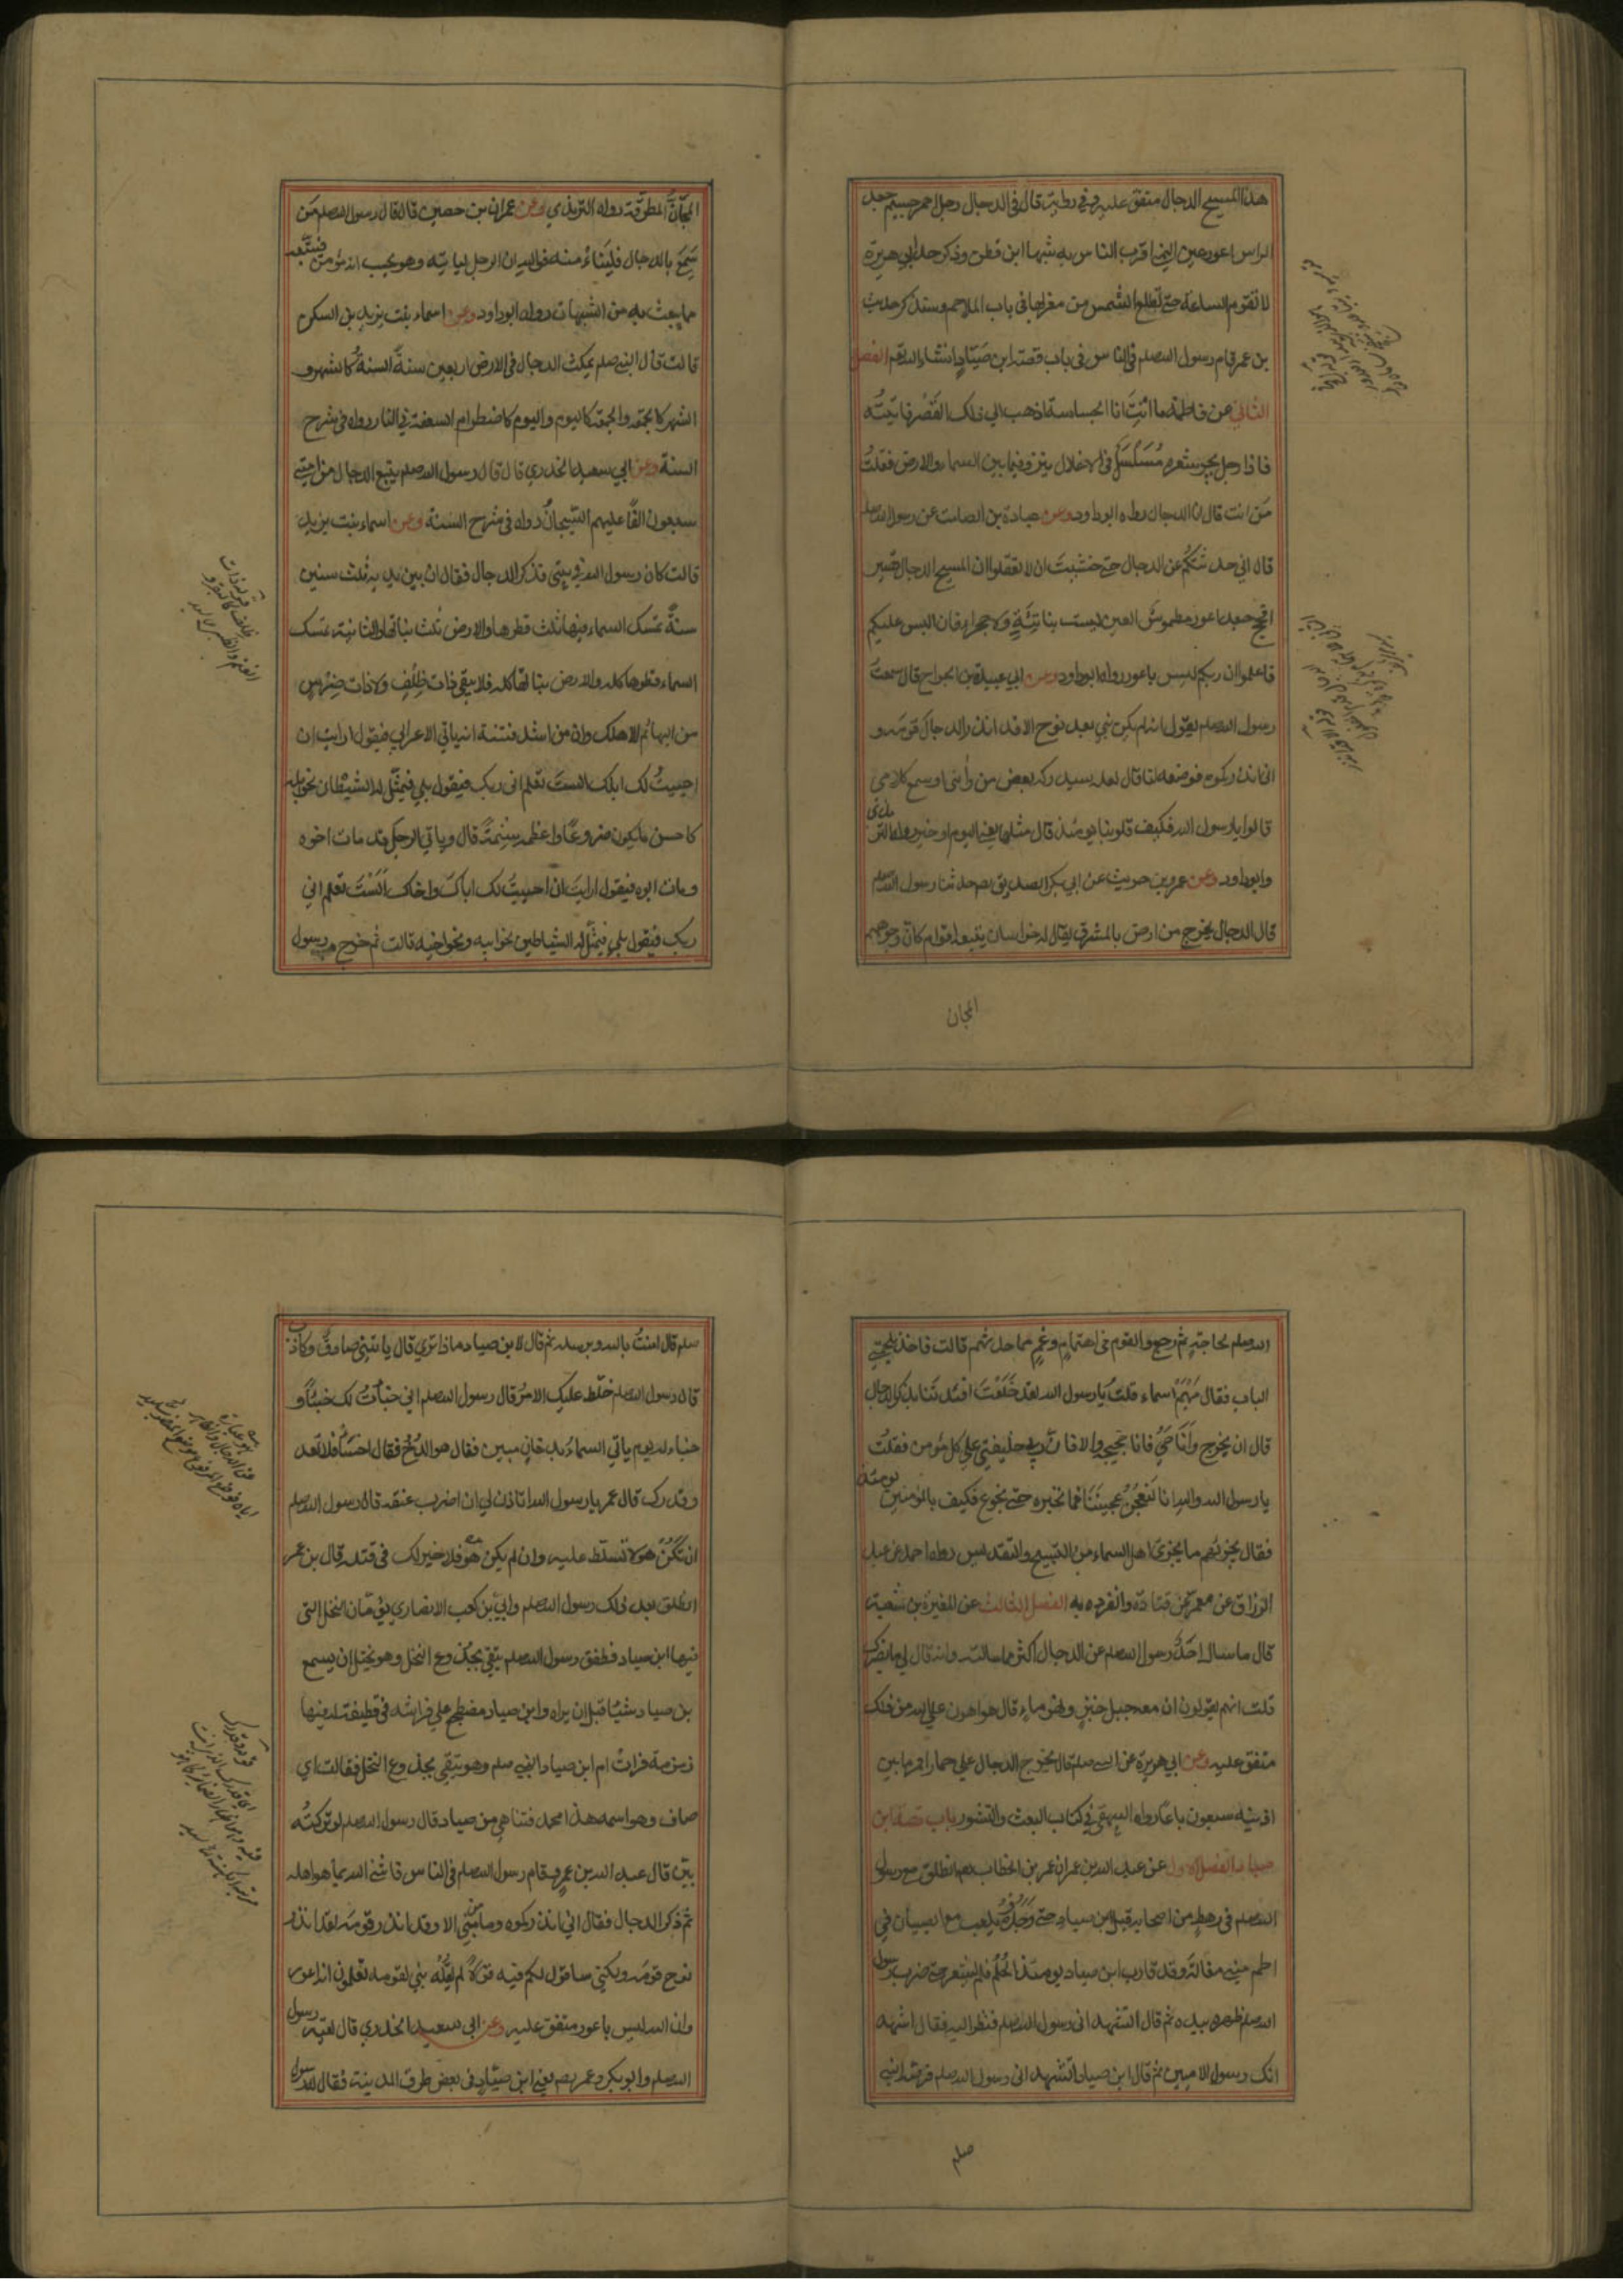 هذا المسيح الدجال متفق عليه وفي رواية قال في الدجال رجل احمر جسيم جعد
الراس اعور عين اليمنى اقرب الناس به شبها ابن قطن وذكر حديث ابي هريرة
لا تقوم الساعة حتى تطلع الشمس من مغربها في باب الملاحم وسنذكر حديث
بن عمر قام رسول الله صلعم في الناس في باب قصة ابن صَيّادٍ انشاء الله تعم الفصل
الثاني عن فاطمة ما انتَ انا الجساسة اذهب الي ذلك القَصْر فاتيتُه
فاذا رجل يجر شعره مُسَلسَل في الاغلال ينزو فيما بين السماء والارض فقلتُ
مَن انت قال انا الدجال رواه ابوداود وعن عبادة بن الصامت عن رسول الله صلعم
قال اني حدثتكُم عن الدجال حتى خشيت ان لا تعقلوا ان المسيح الدجال قصير
افحج جعد اعور مطموسُ العين ليست بناتِئَةٍ ولا جحراء فان البس عليكم
فاعلموا ان ربكم ليس باعور رواه ابوداود وعن ابي عبيدة بن الجراح قال سمعتُ
رسول الله صلعم يقول انه لم يكن نبي بعد نوح الا قد انذر الدجال قومَه و
اني انذركموه فوصفه لنا قال لعله سيدركه بعض من رأني او سمع كلامي
قالوا يا رسول الله فكيف قلوبنا يومئذ قال مثلها يعني اليوم او خير رواه الترمذي
وابوداود وعن عمرو بن حريث عن ابي بكر الصديق رضي حدثنا رسول الله صلعم
قال الدجال يخرج من ارض بالمشرق يقال له خراسان يتبعه اقوام كانّ وجوههم
المجان
المجَانُّ المطرقة رواه الترمذي وعن عمران بن حصين قال قال رسول الله صلعم مَن
سَمِعَ بالدجال فليَناءُ منه فوالله ان الرجل لياتيه وهو يحسب انه مؤمن فيتّبعه
مما يبعث به من الشبهات رواه ابوداود وعن اسماء بنت يزيد بن السكن
قالت قال النبي صلعم يمكث الدجال في الارض اربعين سنةً السنةُ كالشهر و
الشهر كالجمعة والجمعة كاليوم واليوم كاضطرام السعفة في النار رواه في شرح
السنة وعن ابي سعيد الخدري قال قال رسول الله صلعم يتبع الدجال من امتي
سبعون الفًا عليهم السِّيجانُ رواه في شرح السنة وعن اسماء بنت يزيد
قالت كان رسول الله في بيتي فذكر الدجال فقال ان بين يديه ثلث سنين
سنةٌ تمسك السماء فيها ثلث قطرها والارض ثلث نباتها والثانية تمسك
السماء قطرها كله والارض نباتها كله فلا يبقى ذات ظِلْفٍ ولا ذات ضِرْسٍ
من البهائم الا هلك وان من اشد فتنته انه ياتي الاعرابي فيقول ارايت ان
احييتُ لك ابلك الستَ تعلم اني ربك فيقول بلي فيمثّل له الشيطان نحو ابله
كاحسن ما يكون ضروعًا واعظمه سنمةً قال وياتي الرجل قد مات اخوه
ومات ابوه فيقول ارايتَ ان احييتُ لك اباكَ واخاك اَلَسْتَ تعلم اني
ربك فيقول بلي فيمثّل له الشياطين نحو ابيه ونحو اخيه قالت ثم خرج رسول
الله صلعم لحاجتهِ ثم رجع والقوم في اهتمامٍ وغمٍ مما حدثهم قالت فاخذ بلحمتي
الباب فقال مَهْيَم اسماء قلتُ يا رسول الله لقد خَلَعْتَ افئدتنا بذكر الدجال
قال ان يخرج وَاَنَا حَيٌّ فانا حجيجه والا فان ربي خليفتي على كل مؤمن فقلتُ
يا رسول الله والله انا لَنَعجِنُ عجينَنَا فما نخبزه حتى نجوع فكيف بالمؤمنين يومئذ
فقال يجزئهم ما يجزئ اهل السماء من التسبيح والتقديس رواه احمد عن عبد
الرزاق عن معمر عن قتادة وانفرد به الفصل الثالث عن المغيرة بن شعبة
قال ما سال احدٌ رسول الله صلعم عن الدجال اكثر مما سالته وانه قال لي ما يضرك
قلت انهم يقولون ان معه جبل خبزٍ ونهر ماءٍ قال هو اهون على الله من ذلك
متفق عليه وعن ابي هريرة عن النبي صلعم قال يخرج الدجال على حمار اقمر ما بين
اذنيه سبعون باعًا رواه البيهقي في كتاب البعث والنشور باب قصة ابن
صياد الفصل الاول عن عبد الله بن عمر ان عمر بن الخطاب رضي انطلق مع رسول
الله صلعم في رهطٍ من اصحابه قبل ابن صياد حتى وَجَدُوهُ يلعب مع الصبيان في
اطم بني مغالة وقد قارب ابن صياد يومئذ الحُلُم فلم يشعر حتى ضرب رسول
الله صلعم ظهره بيده ثم قال اتشهد اني رسول الله صلعم فنظر اليه فقال اشهد
انك رسول الاميين ثم قال ابن صياد اتشهد اني رسول الله صلعم فرصّه النبي
صلعم
صلعم قال امنتُ بالله وبرسله ثم قال لابن صياد ماذا ترى قال ياتيني صادقٌ وكاذب
قال رسول الله صلعم خلّط عليك الامرُ قال رسول الله صلعم اني خبأتُ لك خبئًا و
خباء له يوم ياتي السماءُ بدخانٍ مبين فقال هو الدُّخُّ فقال اخسأ فلن تعد
وقدرك قال عمر يا رسول الله اتاذن لي ان اضرب عنقه قال رسول الله صلعم
ان تكُنْ هو لا تسلّط عليه وان لم يكن هو فلا خير لك في قتله قال بن عمر
انطلق بعد ذلك رسول الله صلعم وابي بن كعب الانصاري يؤمّان النخل التي
فيها ابن صياد فطفق رسول الله صلعم يتقي بجذوع النخل وهو يختل ان يسمع
بن صياد شيئًا قبل ان يراه وابن صياد مضطجع على فراشه في قطيفة له فيها
زمزمة فرات ام ابن صياد النبي صلعم وهو يتقي بجذوع النخل فقالت اي
صاف وهو اسمه هذا محمد فتناهى بن صياد قال رسول الله صلعم لو تركتُه
بيّن قال عبد الله بن عمرٍ فقام رسول الله صلعم في الناس فاثنى الله بما هو اهله
ثم ذكر الدجال فقال اني انذركموه وما من نبي الا وقد انذر قومَه لقد انذر
نوح قومَه ولكني ساقول لكم فيه قولًا لم يقُلْه نبي لقومه تعلمون انه اعور
وان الله ليس باعور متفق عليه وعن ابي سعيد الخدري قال لقيه رسول
الله صلعم وابو بكر وعمر رضم يعني ابن صيّادٍ في بعض طرق المدينة فقال له رسول